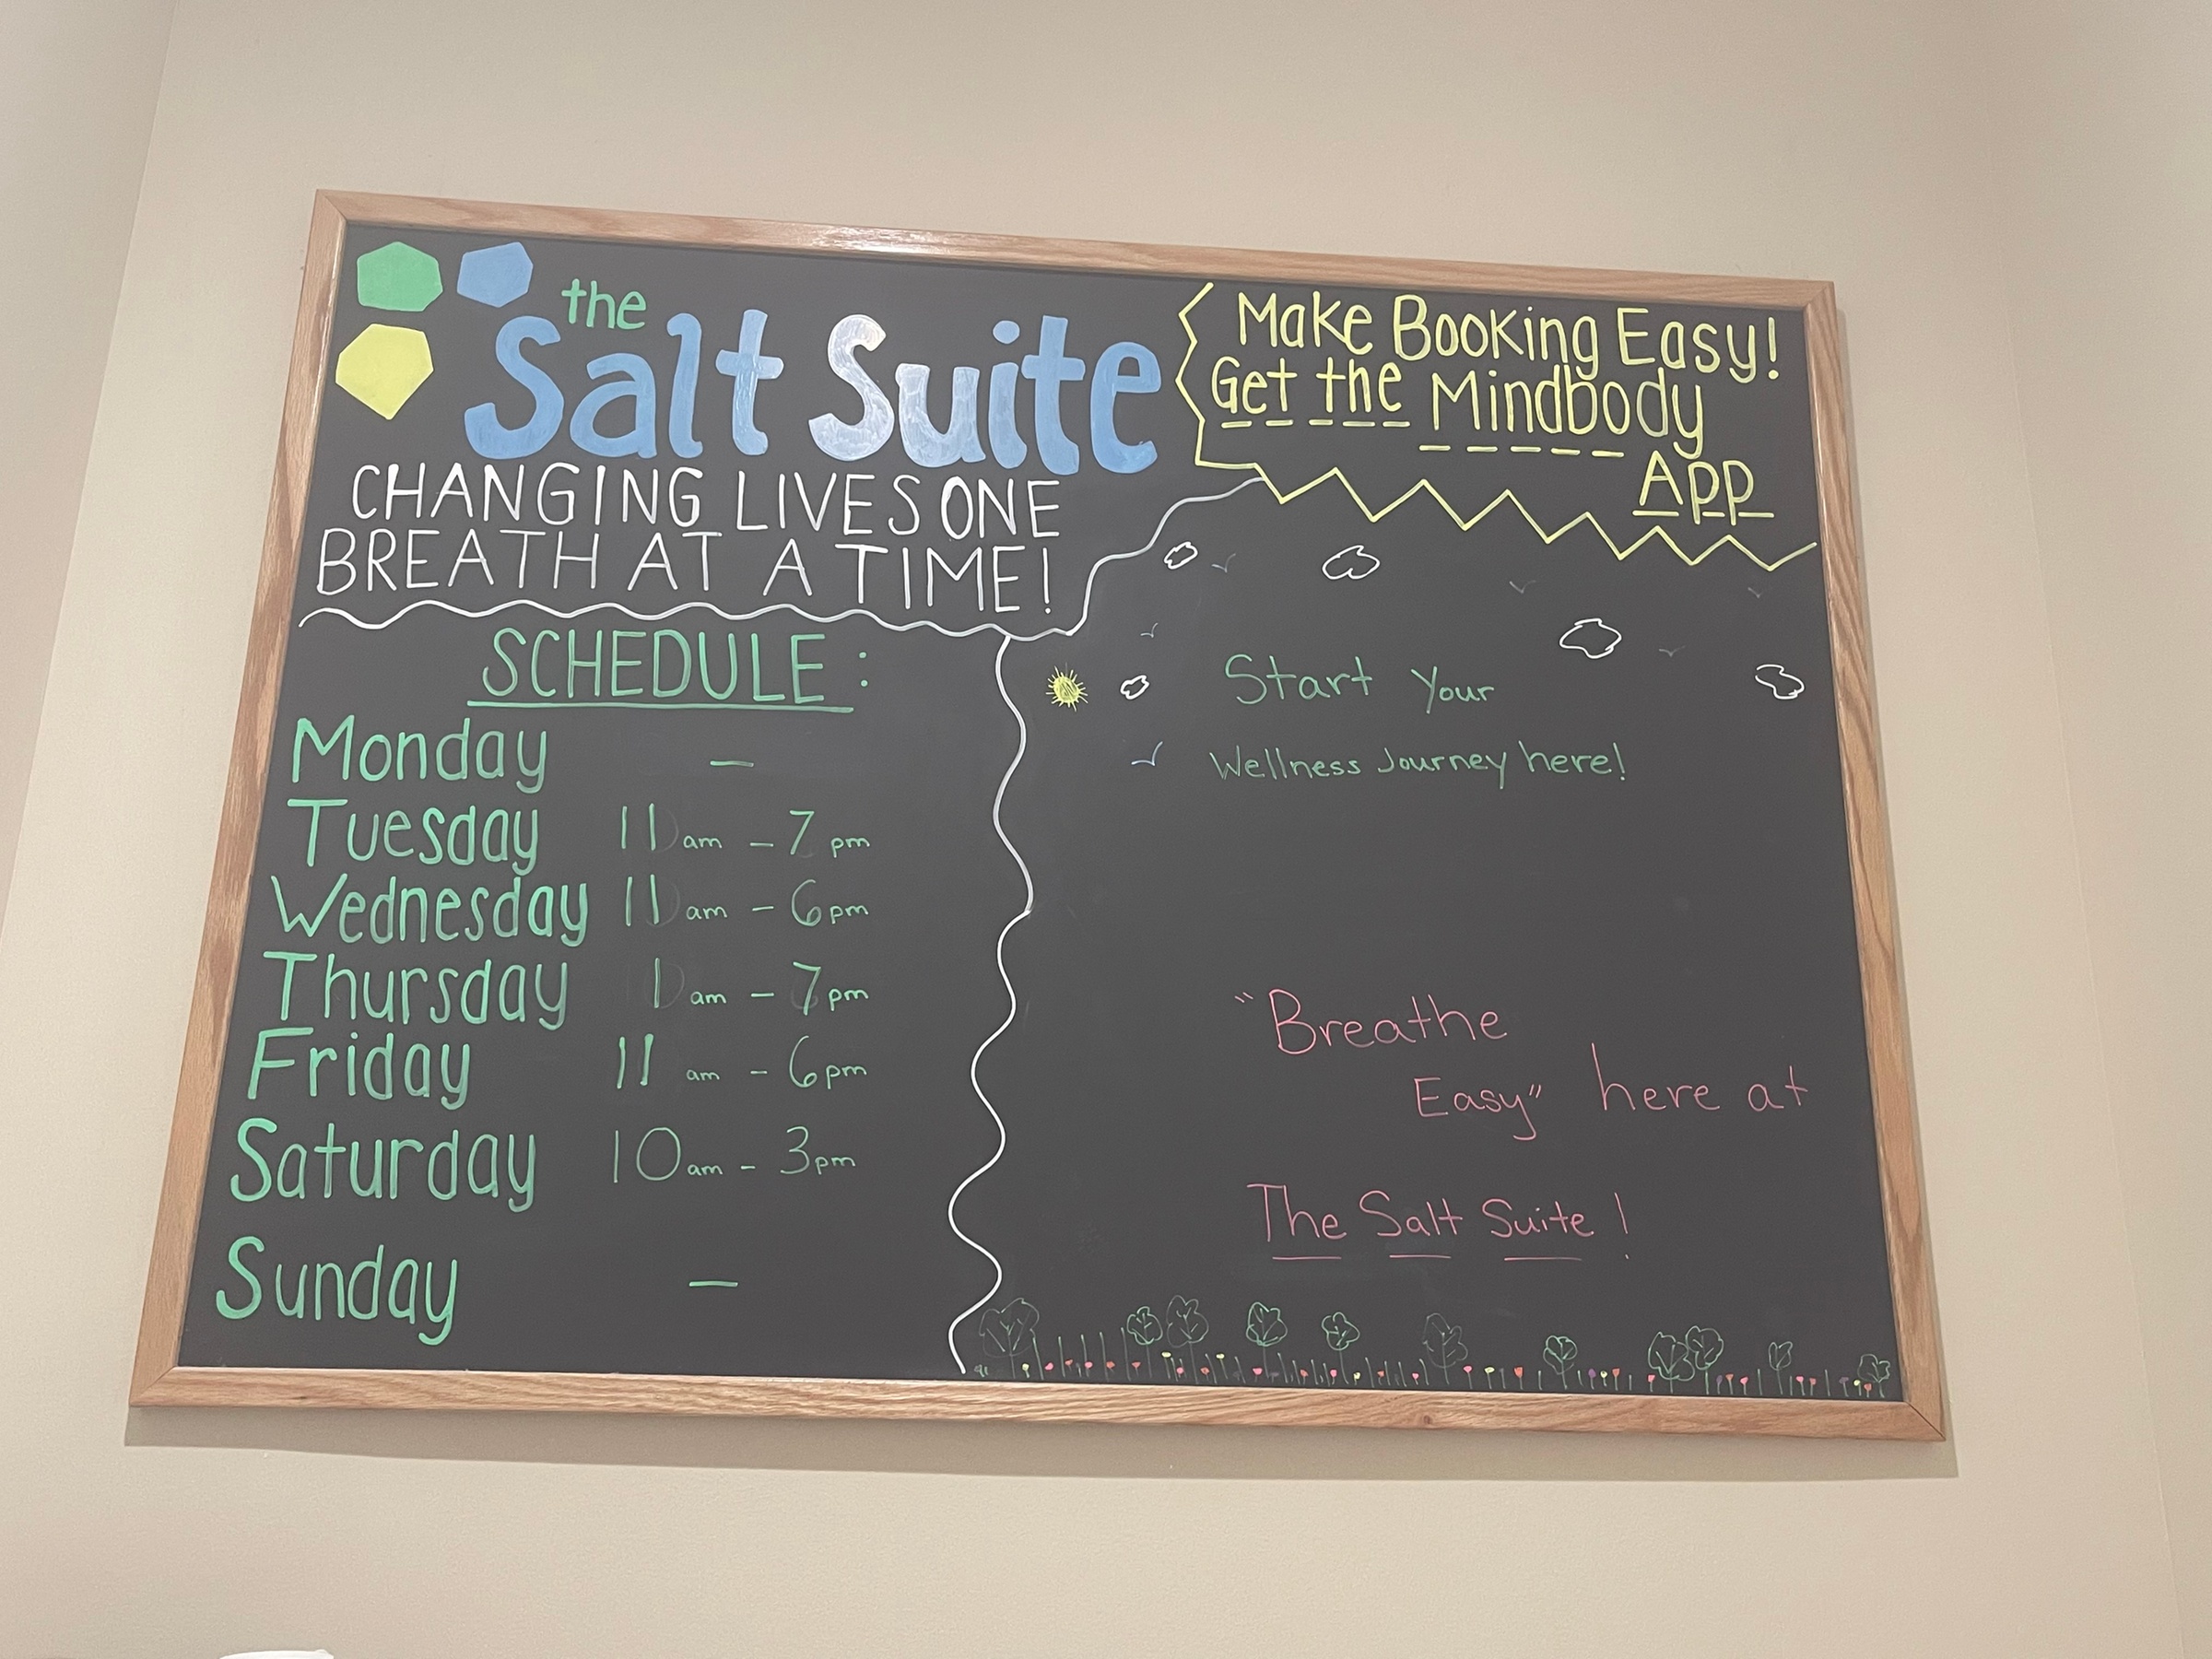 the
Salt Suite
CHANGING LIVES ONE
BREATH AT A TIME!
Make Booking Easy!
Get the Mindbody
App
SCHEDULE:
Monday —
Tuesday 11am - 7pm
Wednesday 11am - 6pm
Thursday 1am - 7pm
Friday 11am - 6pm
Saturday 10am - 3pm
Sunday —
Start Your
Wellness Journey here!
"Breathe
Easy" here at
The Salt Suite!